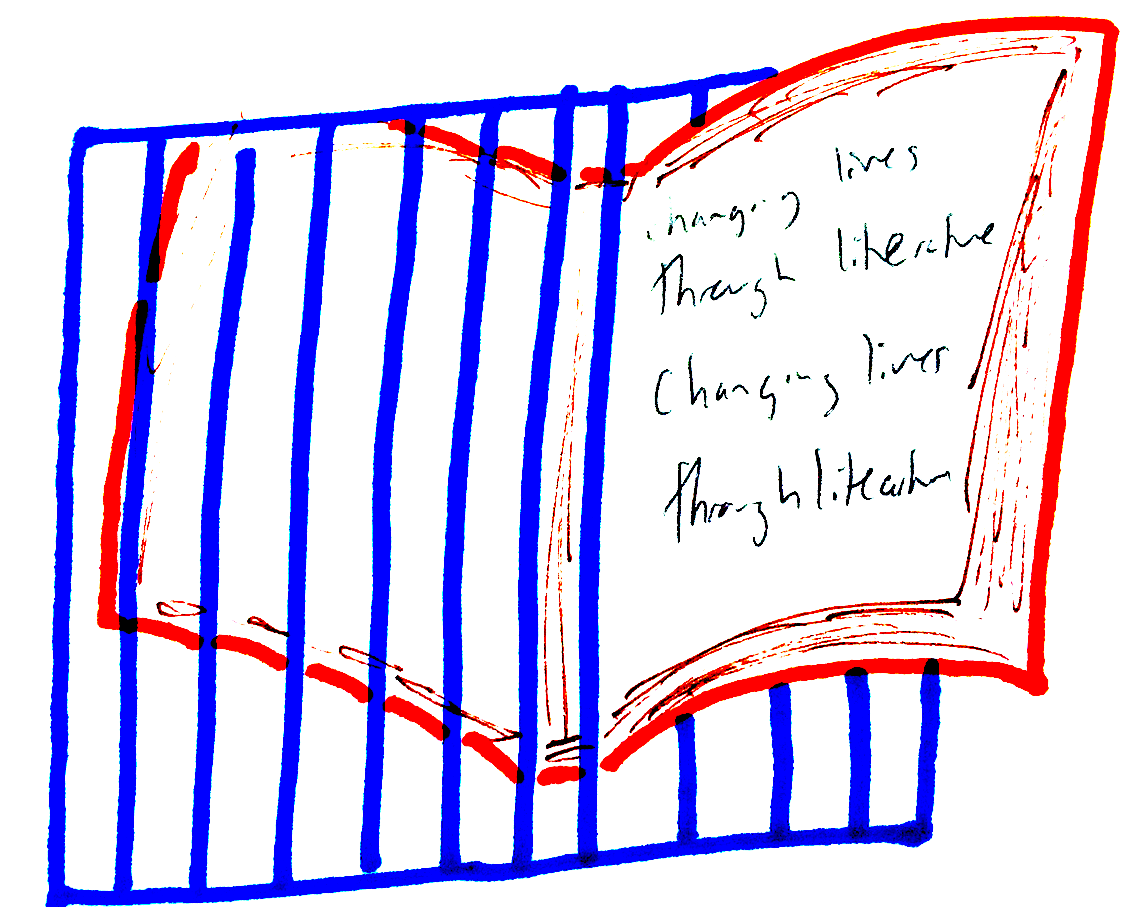 changing lives
through literature
Changing lives
through literature